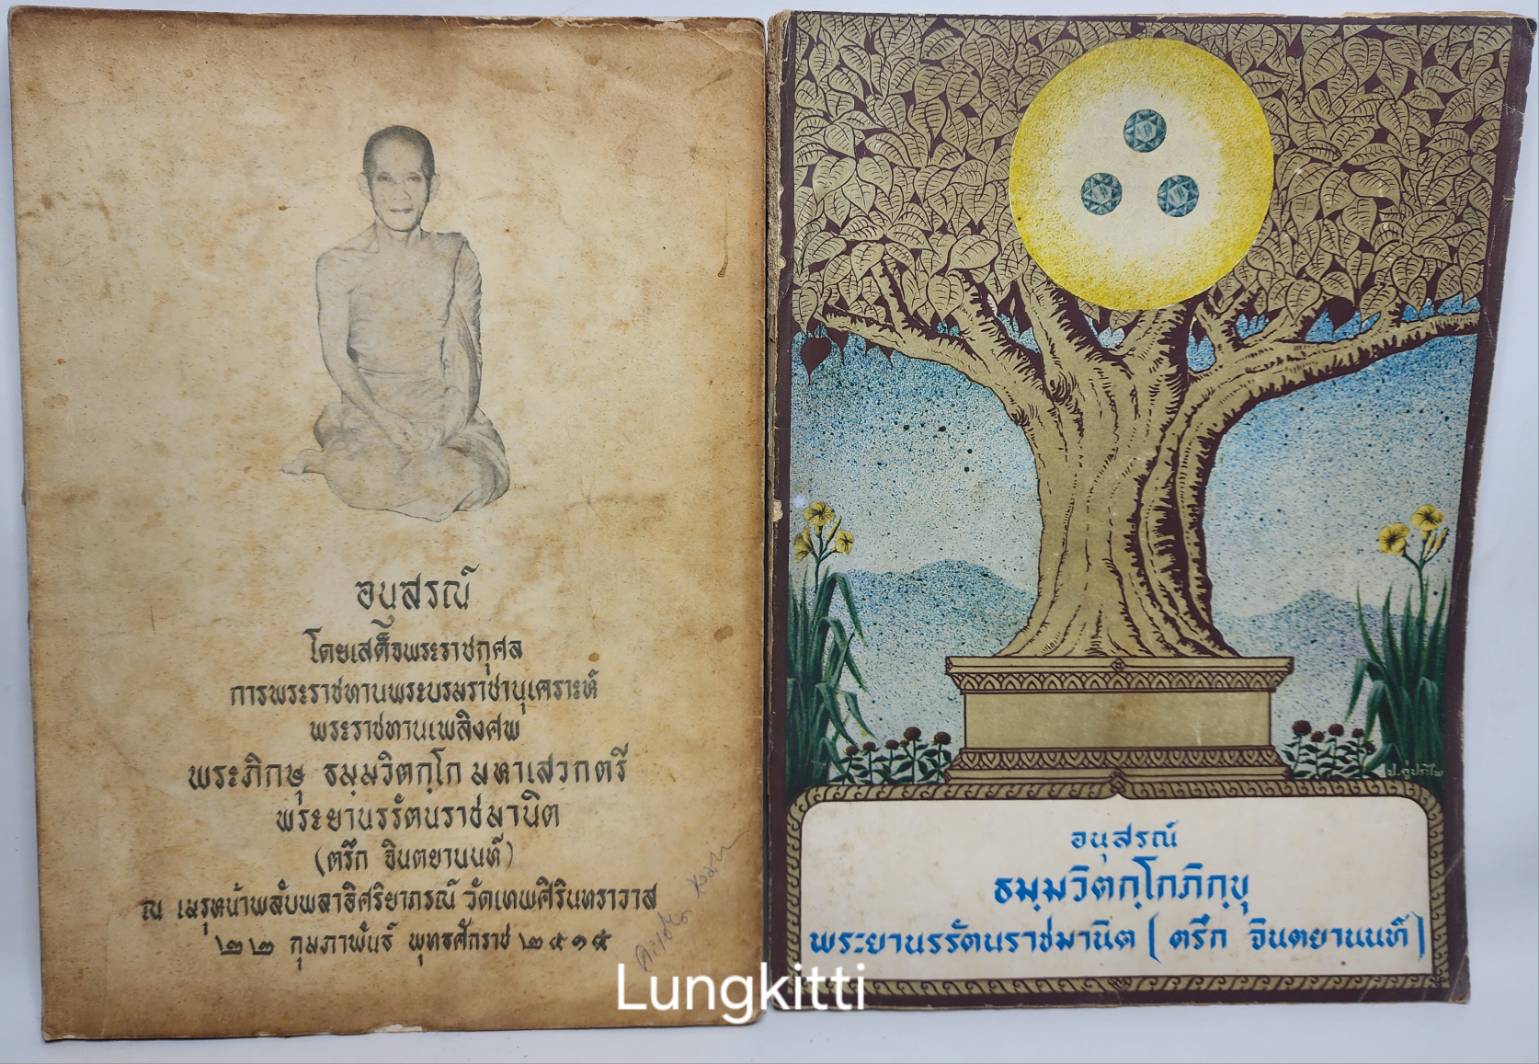 อนุสรณ์
โดยเสด็จพระราชกุศล
การพระราชทานพระบรมราชานุเคราะห์
พระราชทานเพลิงศพ
พระภิกษุ ธมฺมวิตกฺโก มหาเสวกตรี
พระยานรรัตนราชมานิต
(ตรึก จินตยานนท์)
ณ เมรุหน้าพลับพลาอิศริยาภรณ์ วัดเทพศิรินทราวาส
๒๒ กุมภาพันธ์ พุทธศักราช ๒๕๑๕
ป. อู่ประไพ
อนุสรณ์
ธมฺมวิตกฺโกภิกฺขุ
พระยานรรัตนราชมานิต ( ตรึก จินตยานนท์ )
Lungkitti